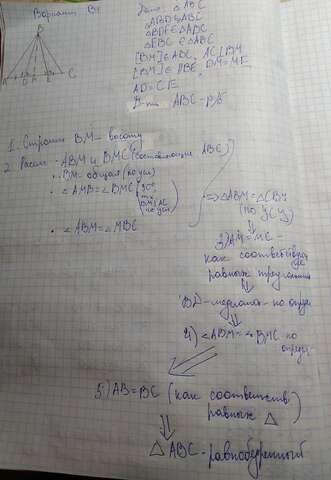 Вариант В1
Дано: △ABC
△ABD ∈ ABC
△BDE ∈ △ABC
△EBC ∈ △ABC
[BM] ∈ ABC, AC⊥BM
[BM] ∈ DBE, DM=ME
AD=CE
Д-ть ABC - р/б
B
A D M E C
1. Строим BM - высоту
2. Рассм. ABM и BMC (составляющие ABC)
BM - общая (по усл)
∠AMB = ∠BMC (90°, тк BM⊥AC по усл)
∠ABM = ∠MBC
⇒ △ABM = △CBM
(по УСУ)
3) AM = MC -
как соответств
равных треугольников
BD - медиана - по опред
4) ∠ABM = ∠BMC - по
опред
5) AB = BC (как соответств
равных △)
△ABC - равнобедренный